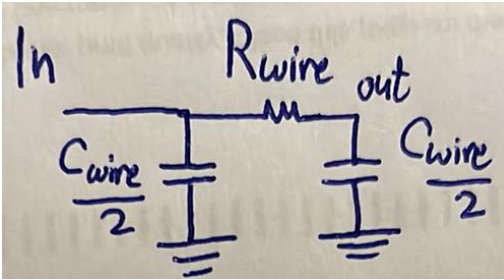 In
Rwire
out
Cwire
2
Cwire
2